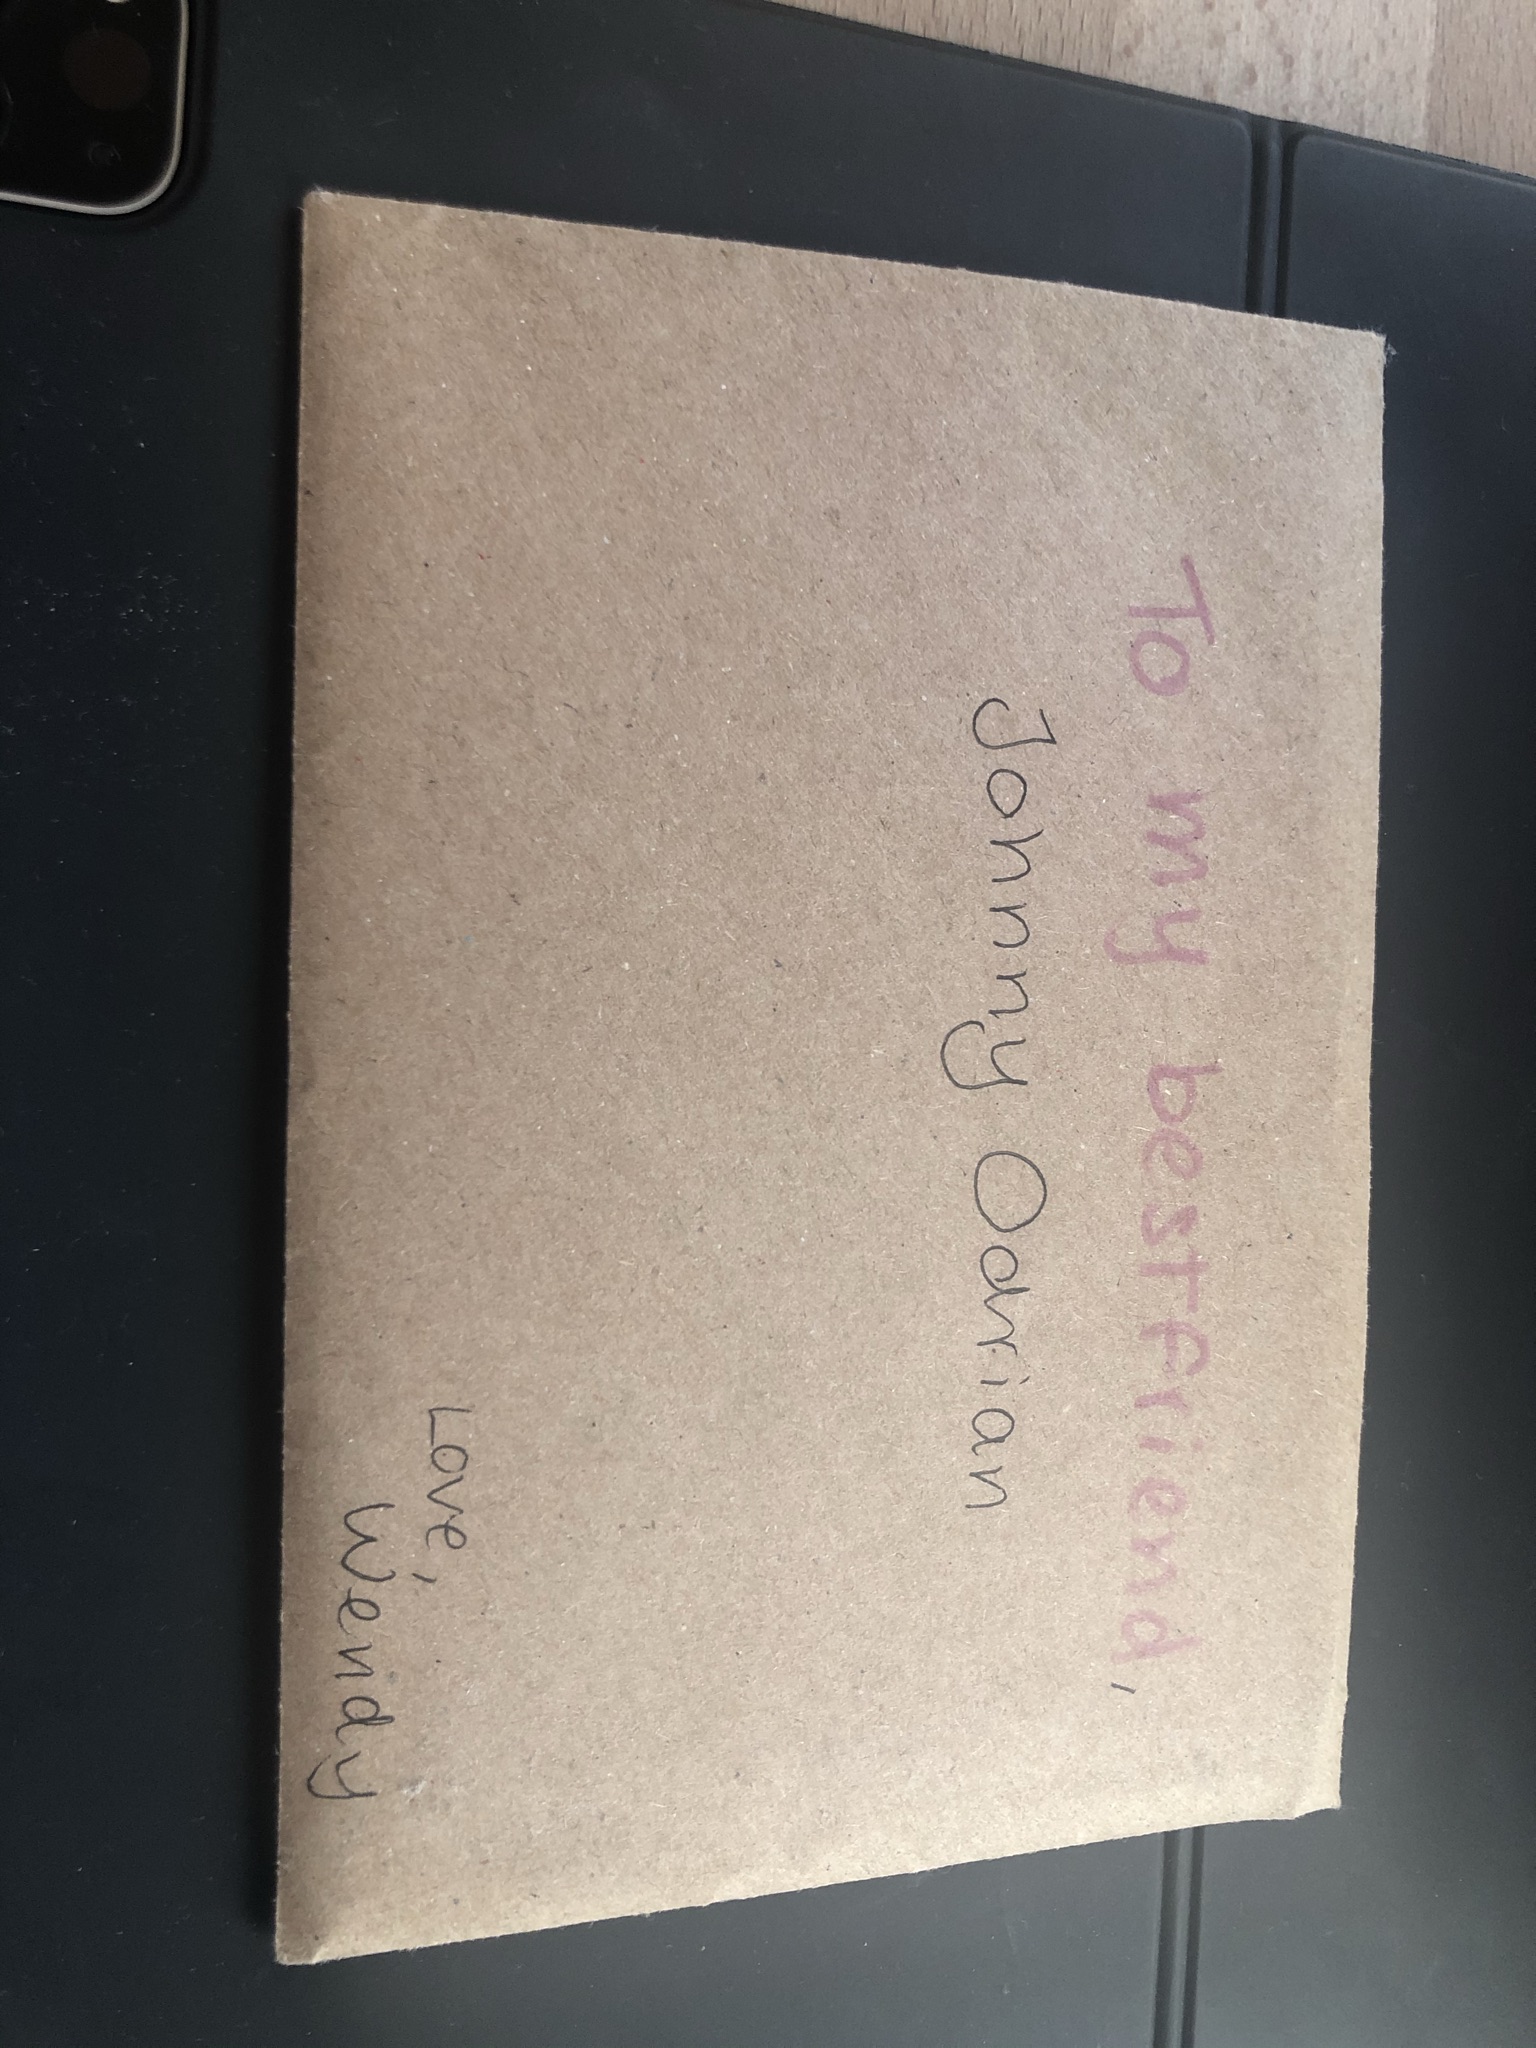 To my bestfriend,
Johnny Odrian
Love,
Wendy